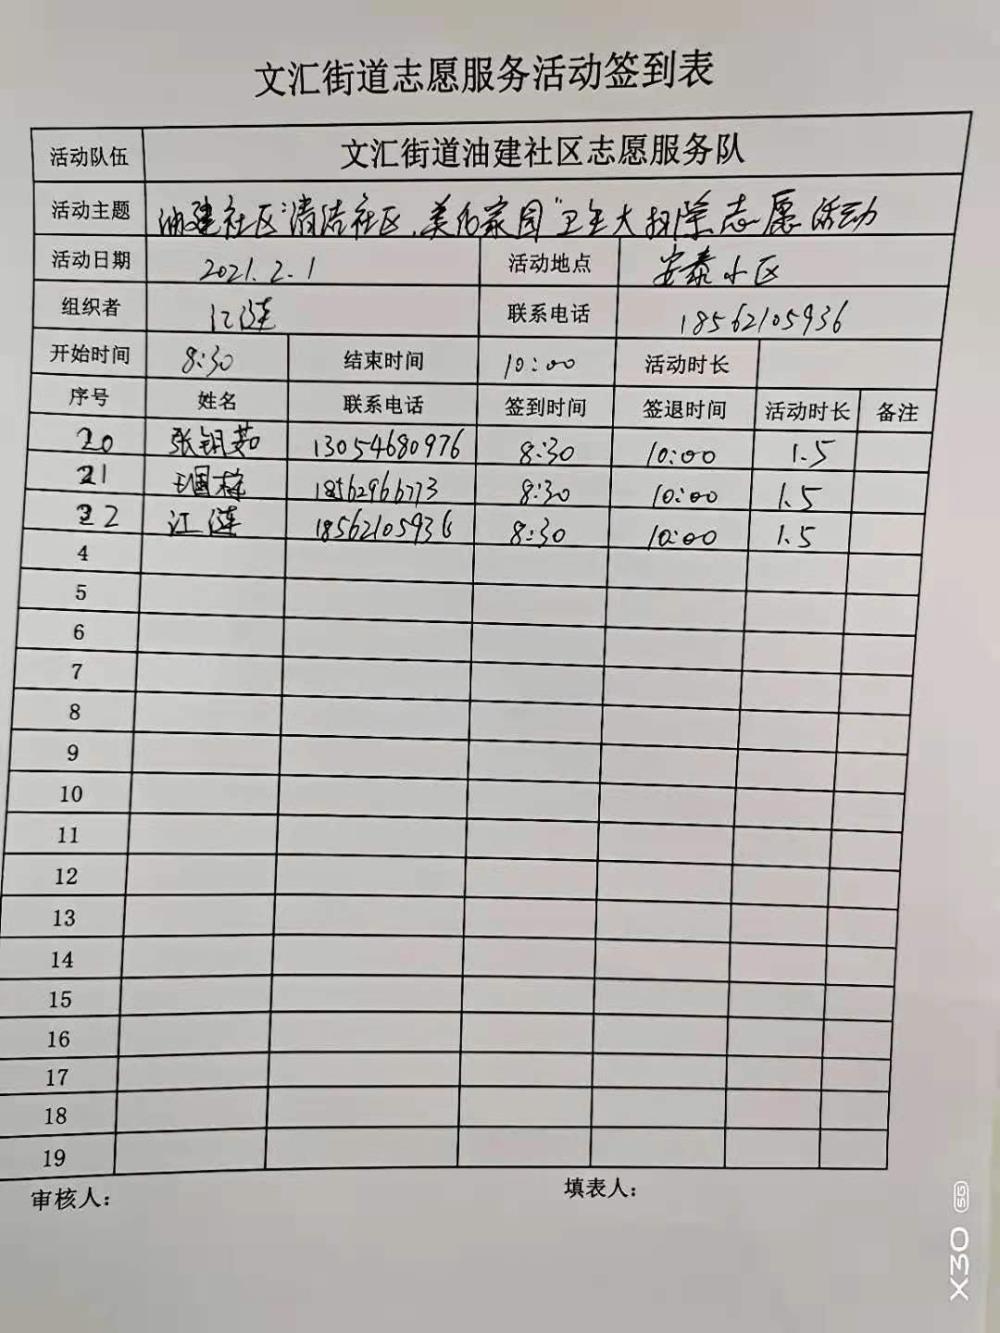 文汇街道志愿服务活动签到表
活动队伍 文汇街道油建社区志愿服务队
活动主题 油建社区"清洁社区,美化家园"卫生大扫除志愿活动
活动日期 2021.2.1 活动地点 安泰小区
组织者 江涟 联系电话 18562105936
开始时间 8:30 结束时间 10:00 活动时长
序号 姓名 联系电话 签到时间 签退时间 活动时长 备注
20 张 茹 13054680976 8:30 10:00 1.5
21 王国栋 8:30 10:00 1.5
22 江涟 18562105936 8:30 10:00 1.5
4
5
6
7
8
9
10
11
12
13
14
15
16
17
18
19
审核人: 填表人:
X30 5G